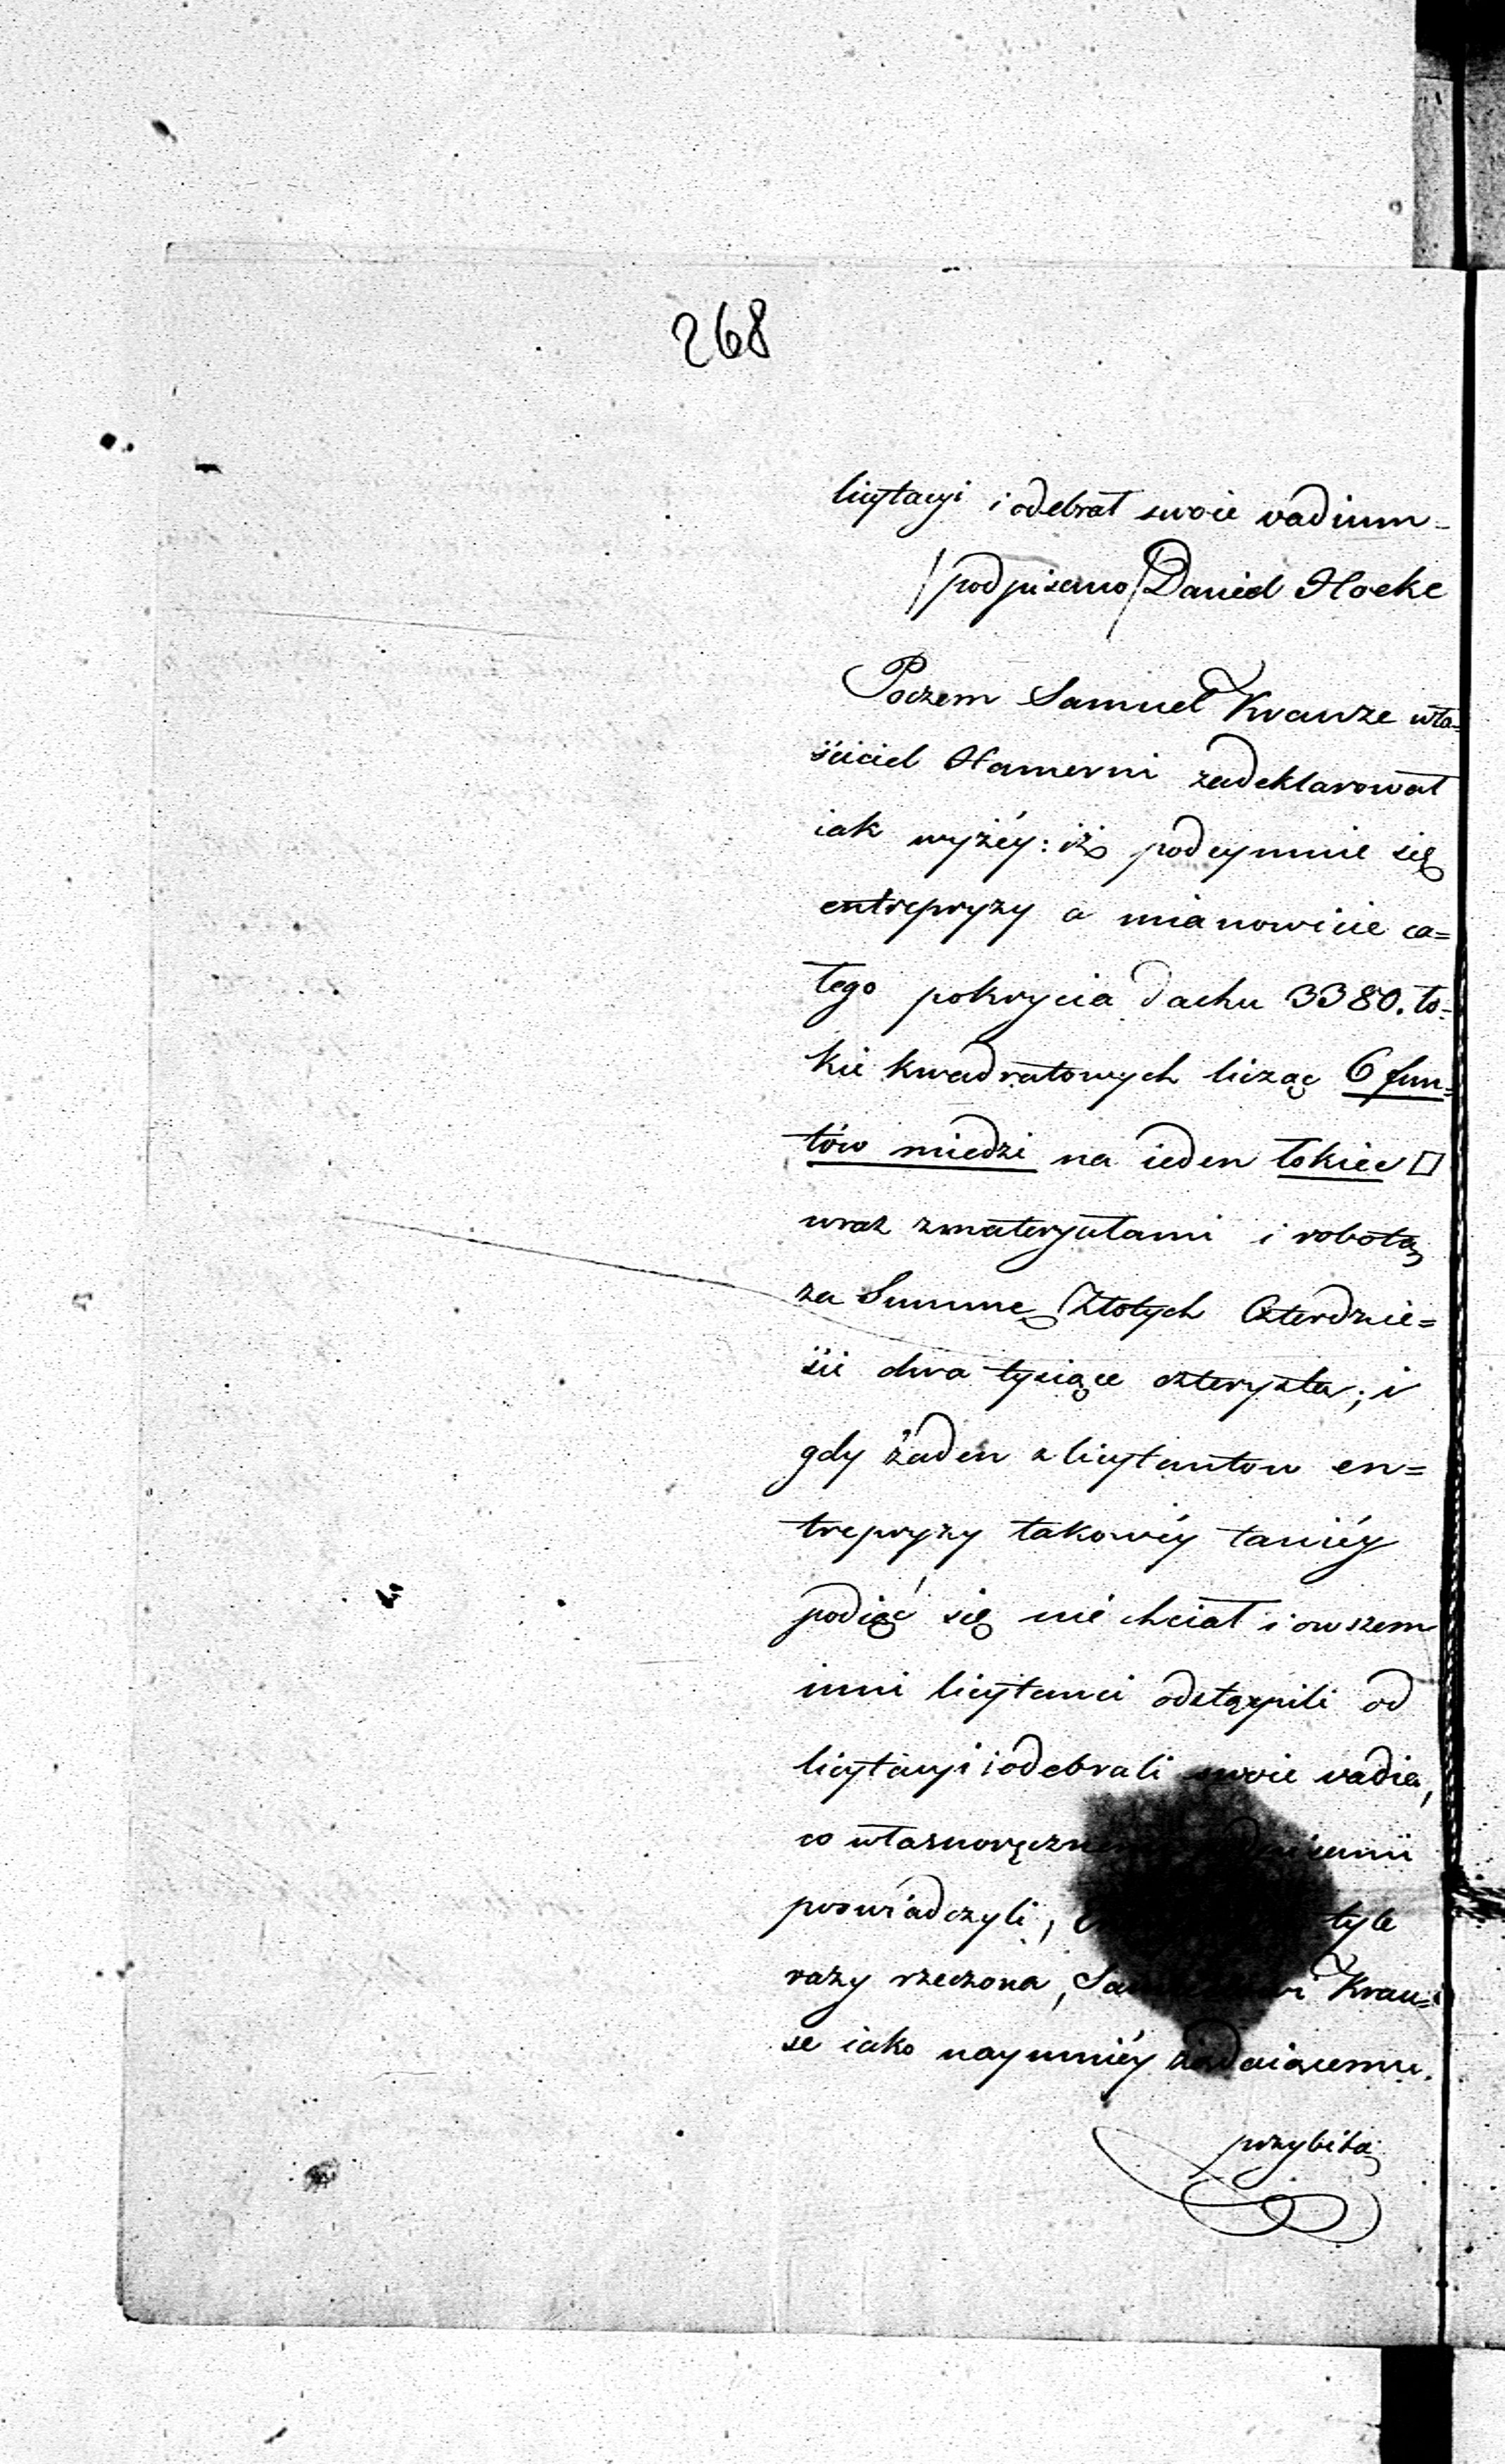 268
licytacyi i odebrał swoie vadium –
/podpisano/ Daniel Hoeke
Poczem Samuel Krauze wła=
ściciel Hamerni zadeklarował
iak wyżéy: iż podeymnie się
entrepryzy a mianowicie ca=
łego pokrycia dachu 3380. ło=
kci kwadratowych licząc 6 fun=
tów miedzi na ieden łokieć □
wraz zmateryałami i robotą
za Summę Złotych Czterdzie=
ści dwa tysiące czterysta; i
gdy żaden z licytantow en=
trepryzy takowéy taniéy
podiąć się nie chciał i owszem
inni licytanci odstąpili od
licytacyi i odebrali swoie vadia,
co własnoręcznem
poswiadczyli, tyle
razy rzeczona, Samuelowi Krau=
se iako naymniéy żądaiącemu.
przybitą